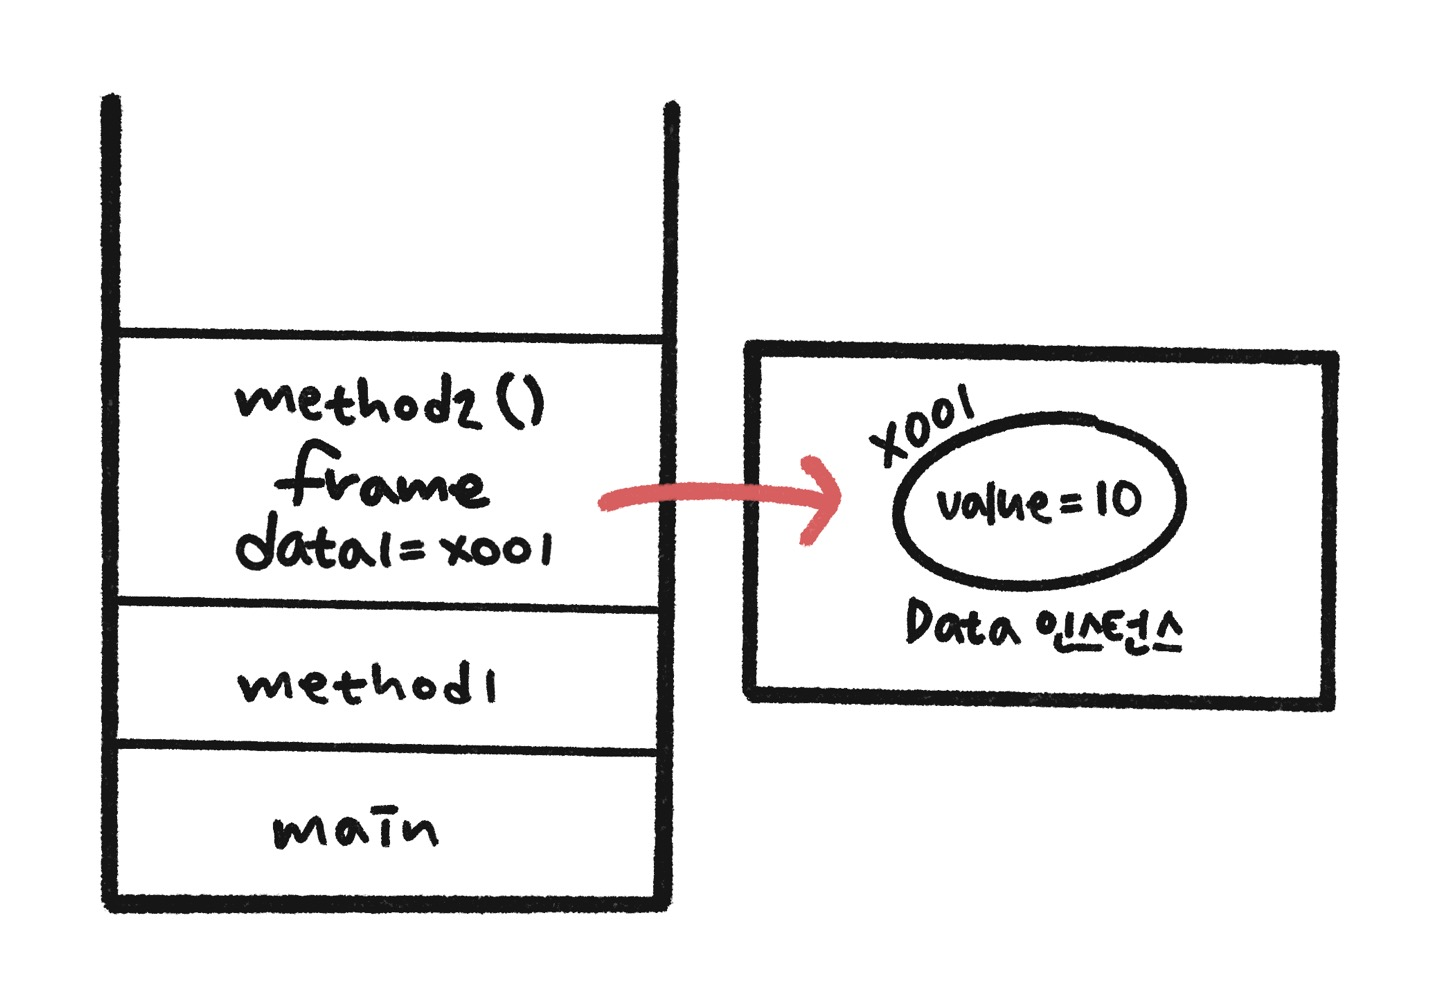 method2 ()
frame
data1 = x001
method1
main
x001
value = 10
Data 인스턴스